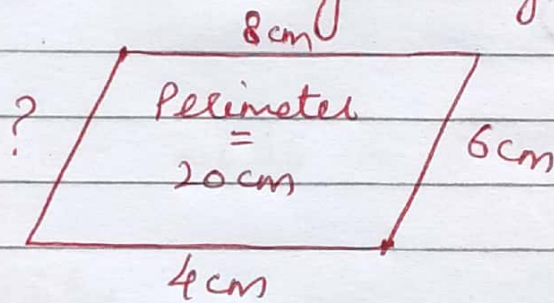 8cm
Perimeter
?
=
6cm
20cm
4cm